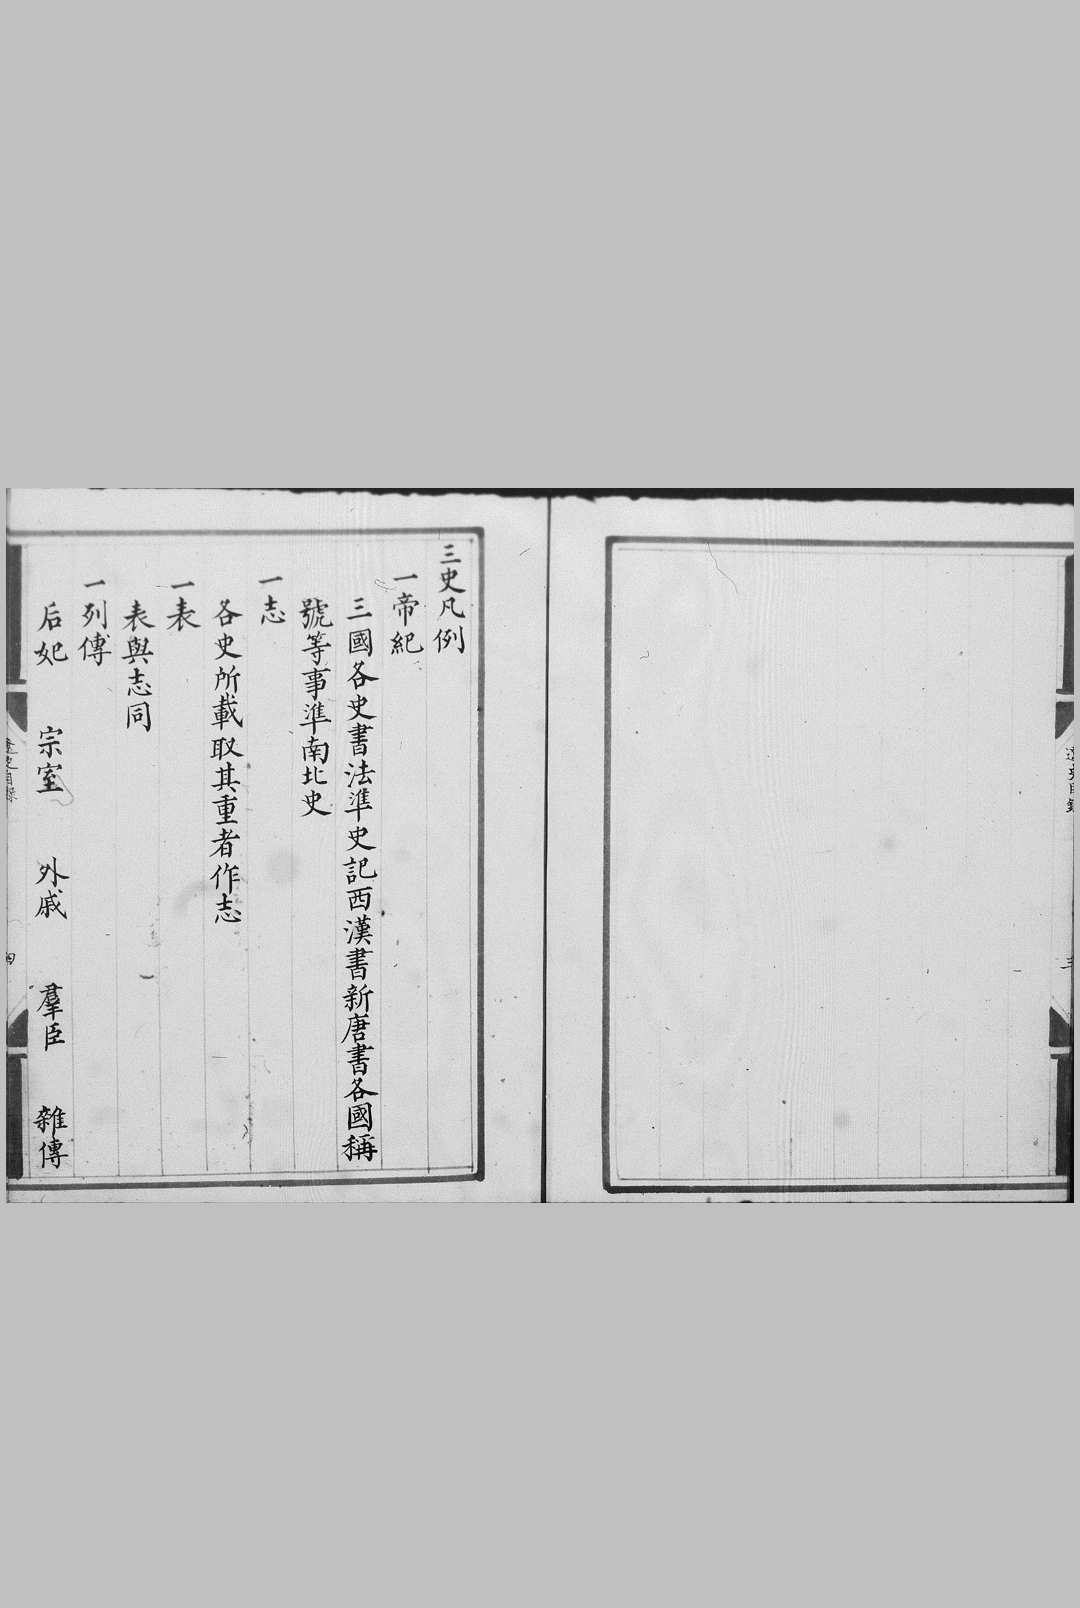 三史凡例
一帝紀
三國各史書法準史記西漢書新唐書各國稱
號等事準南北史
一志
各史所載取其重者作志
一表
表與志同
一列傳
后妃 宗室 外戚 羣臣 雜傳